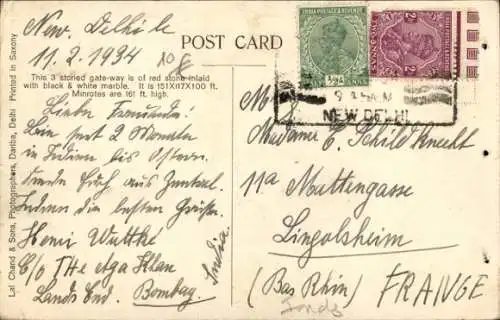 New Delhi le
11.2.1934
108
POST CARD
This 3 storied gate-way is of red stone inlaid
with black & white marble. It is 151X117X100 ft.
Minrotes are 161 ft. high.
Liebe Freunde!
Bin seit 2 Monate
in Indien bis Ostern.
sende Euch aus Zentral.
Indien die besten Grüsse.
Henri Wuttké
C/o THe Aga Khan
Lands End. Bombay.
India
Lal Chand & Sons, Photographers, Dariba, Delhi Printed in Saxony
INDIA POSTAGE & REVENUE
NEW DELHI
Madame E. Schildknecht
11a Muttengasse
Lingolsheim
(Bas Rhin) FRANCE